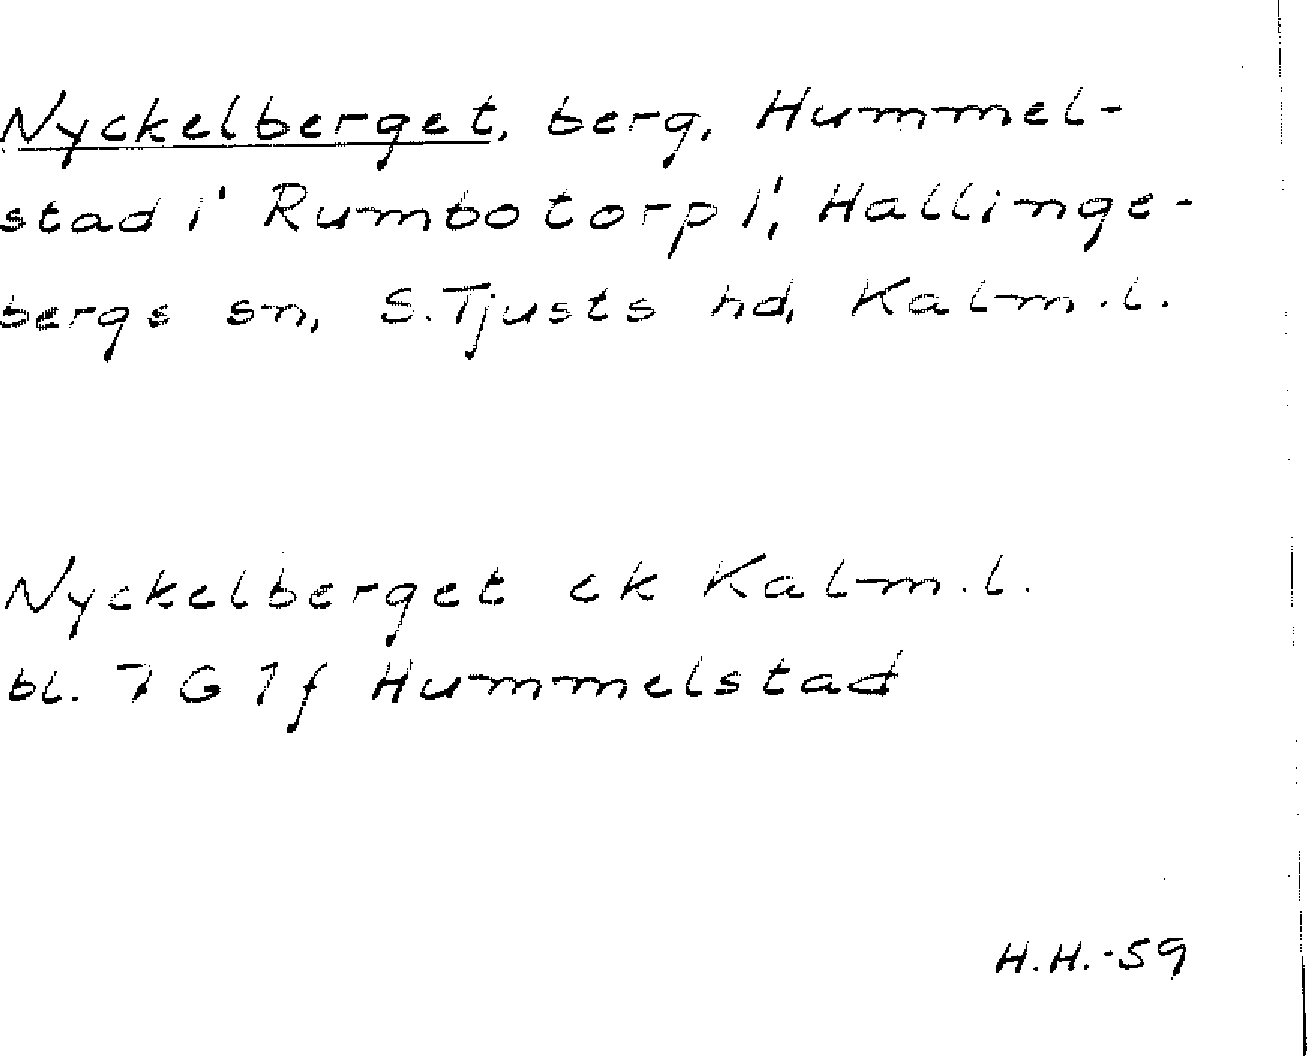 Nyckelberget, berg, Hummel-
stad 1' Rumbotorp 1', Hallinge-
bergs sn, S.Tjusts hd, Kalm.l.
Nyckelberget ek Kalm.l.
bl. 7 G 1f Hummelstad
H.H.-59